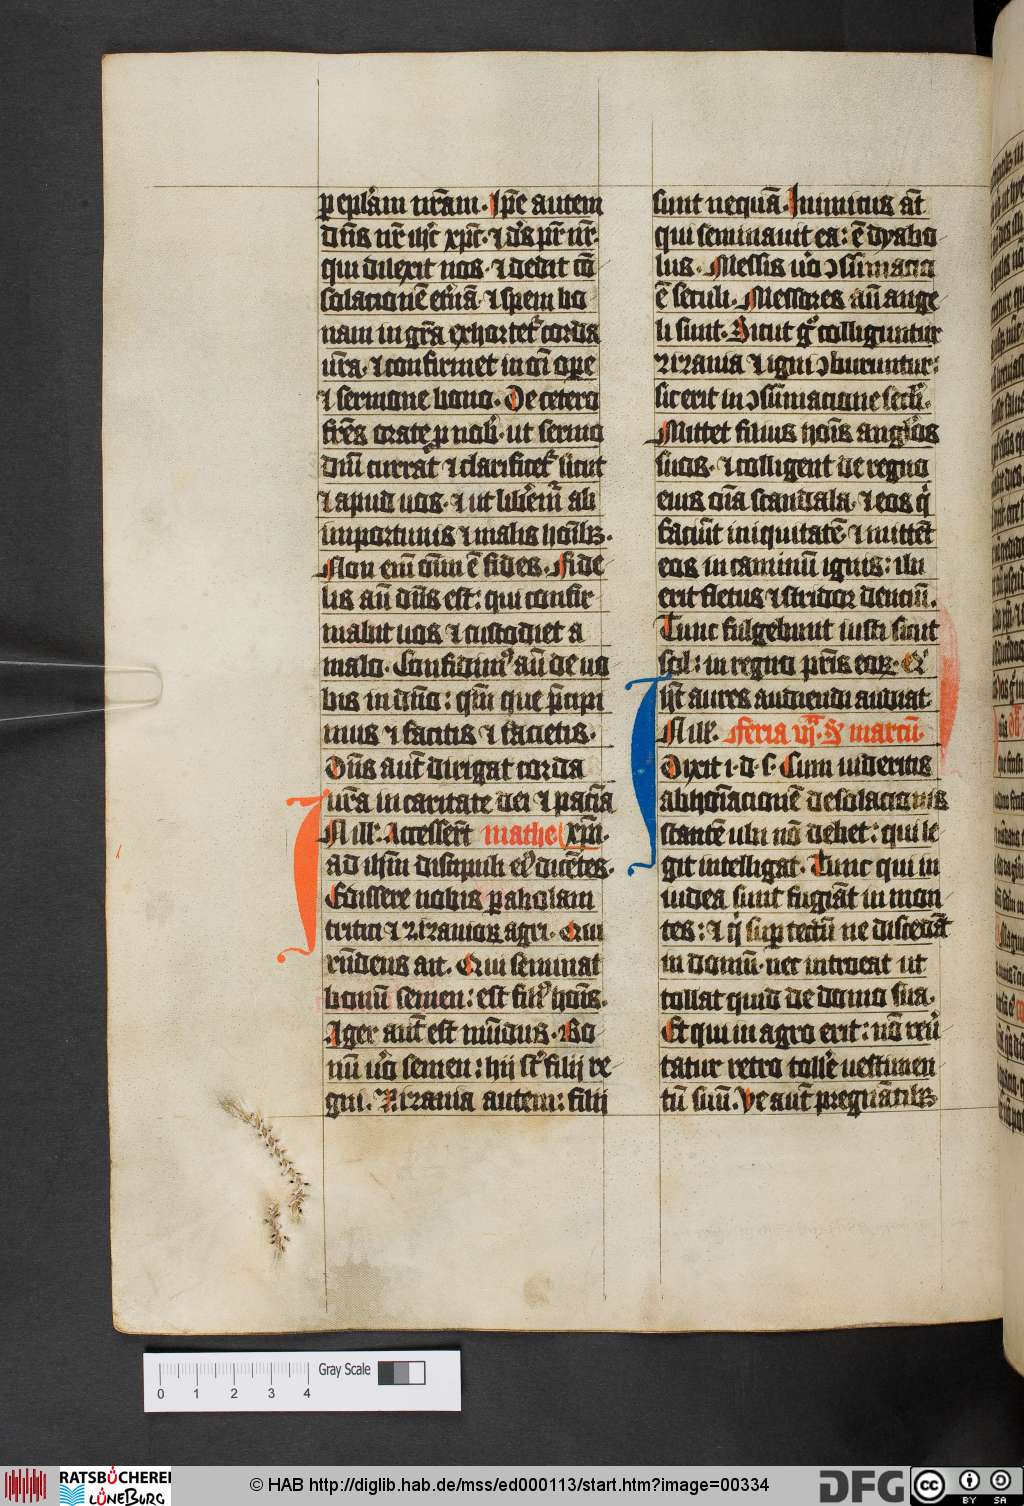 p epl'am nr̄am. Ip̄e autem
dn̄s nr̄ ihc̄ xpc̄. ⁊ ds̄ pr̄ nr̄.
qui dilexit nos. ⁊ dedit cō
solacionē et'nā. ⁊ spem bo
nam in gr̄a exhortet᷑ corda
vr̄a. ⁊ confirmet in om̄i ope
⁊ sermone bono. De cetero
fr̄es orate p nob'. ut sermo
dn̄i currat ⁊ clarificet᷑ sicut
⁊ apud uos. ⁊ ut lib'em᷑ ab
importunis ⁊ malis hoībꝫ.
Non em̄ om̄ī ē fides. Fide
lis aū dn̄s est: qui confir
mabit uos ⁊ custodiet a
malo. Confidimꝰ aū de uo
bis in dn̄o: qm̄ que p̄cipi
mus ⁊ facitis ⁊ facietis.
Dn̄s aut̄ dirigat corda
vr̄a in caritate dei ⁊ pacīa
In ill'. Accesser̄t mathe xpi.
ad ihm̄ discipuli eiꝰ dicētes.
Edissere nobis parabolam
tritici ⁊ zizanioꝝ agri. Qui
rn̄dens ait. Qui seminat
bonū semen: est filiꝰ hoīs.
Ager aut̄ est mūdus. Bo
nū uo semen: hii st̄ filij re
gni. Zizania autem: filij
sunt nequā. Inimicus at̄
qui seminauit ea: ē dyabo
lus. Messis uo ꝯsūmacio
ē seculi. Messores aū ange
li sunt. Sicut gͦ colliguntur
zizania ⁊ igni ꝯburuntur:
sic erit in ꝯsūmacione secl'i.
Mittet filius hoīs angl'os
suos. ⁊ colligent de regno
eius om̄ia scandala. ⁊ eos qͥ
faciūt iniquitatē. ⁊ mittēt
eos in caminū ignis: ibi
erit fletus ⁊ stridor denciū.
Tunc fulgebunt iusti sicut
sol: in regno pr̄is eoꝝ. Qͥ
hȝ aures audiendi audiat.
In ill'. Feria vjᵃ. S. marcū.
Dixit i. d. s. Cum uideritis
abhoīacionē desolacionis
stantē ubi nō debet: qui le
git intelligat. Tunc qui in
iudea sunt fugiāt in mon
tes: ⁊ qͥ sup tectū ne discedāt
in domū. nec introeat ut
tollat quid de domo sua.
Et qui in agro erit: nō reu'
tatur retro toll'e uestimen
tū suū. Ve aut̄ pregnātibꝫ
Gray Scale
0 1 2 3 4
RATSBÜCHEREI
LÜNEBURG
© HAB http://diglib.hab.de/mss/ed000113/start.htm?image=00334
DFG
cc BY SA